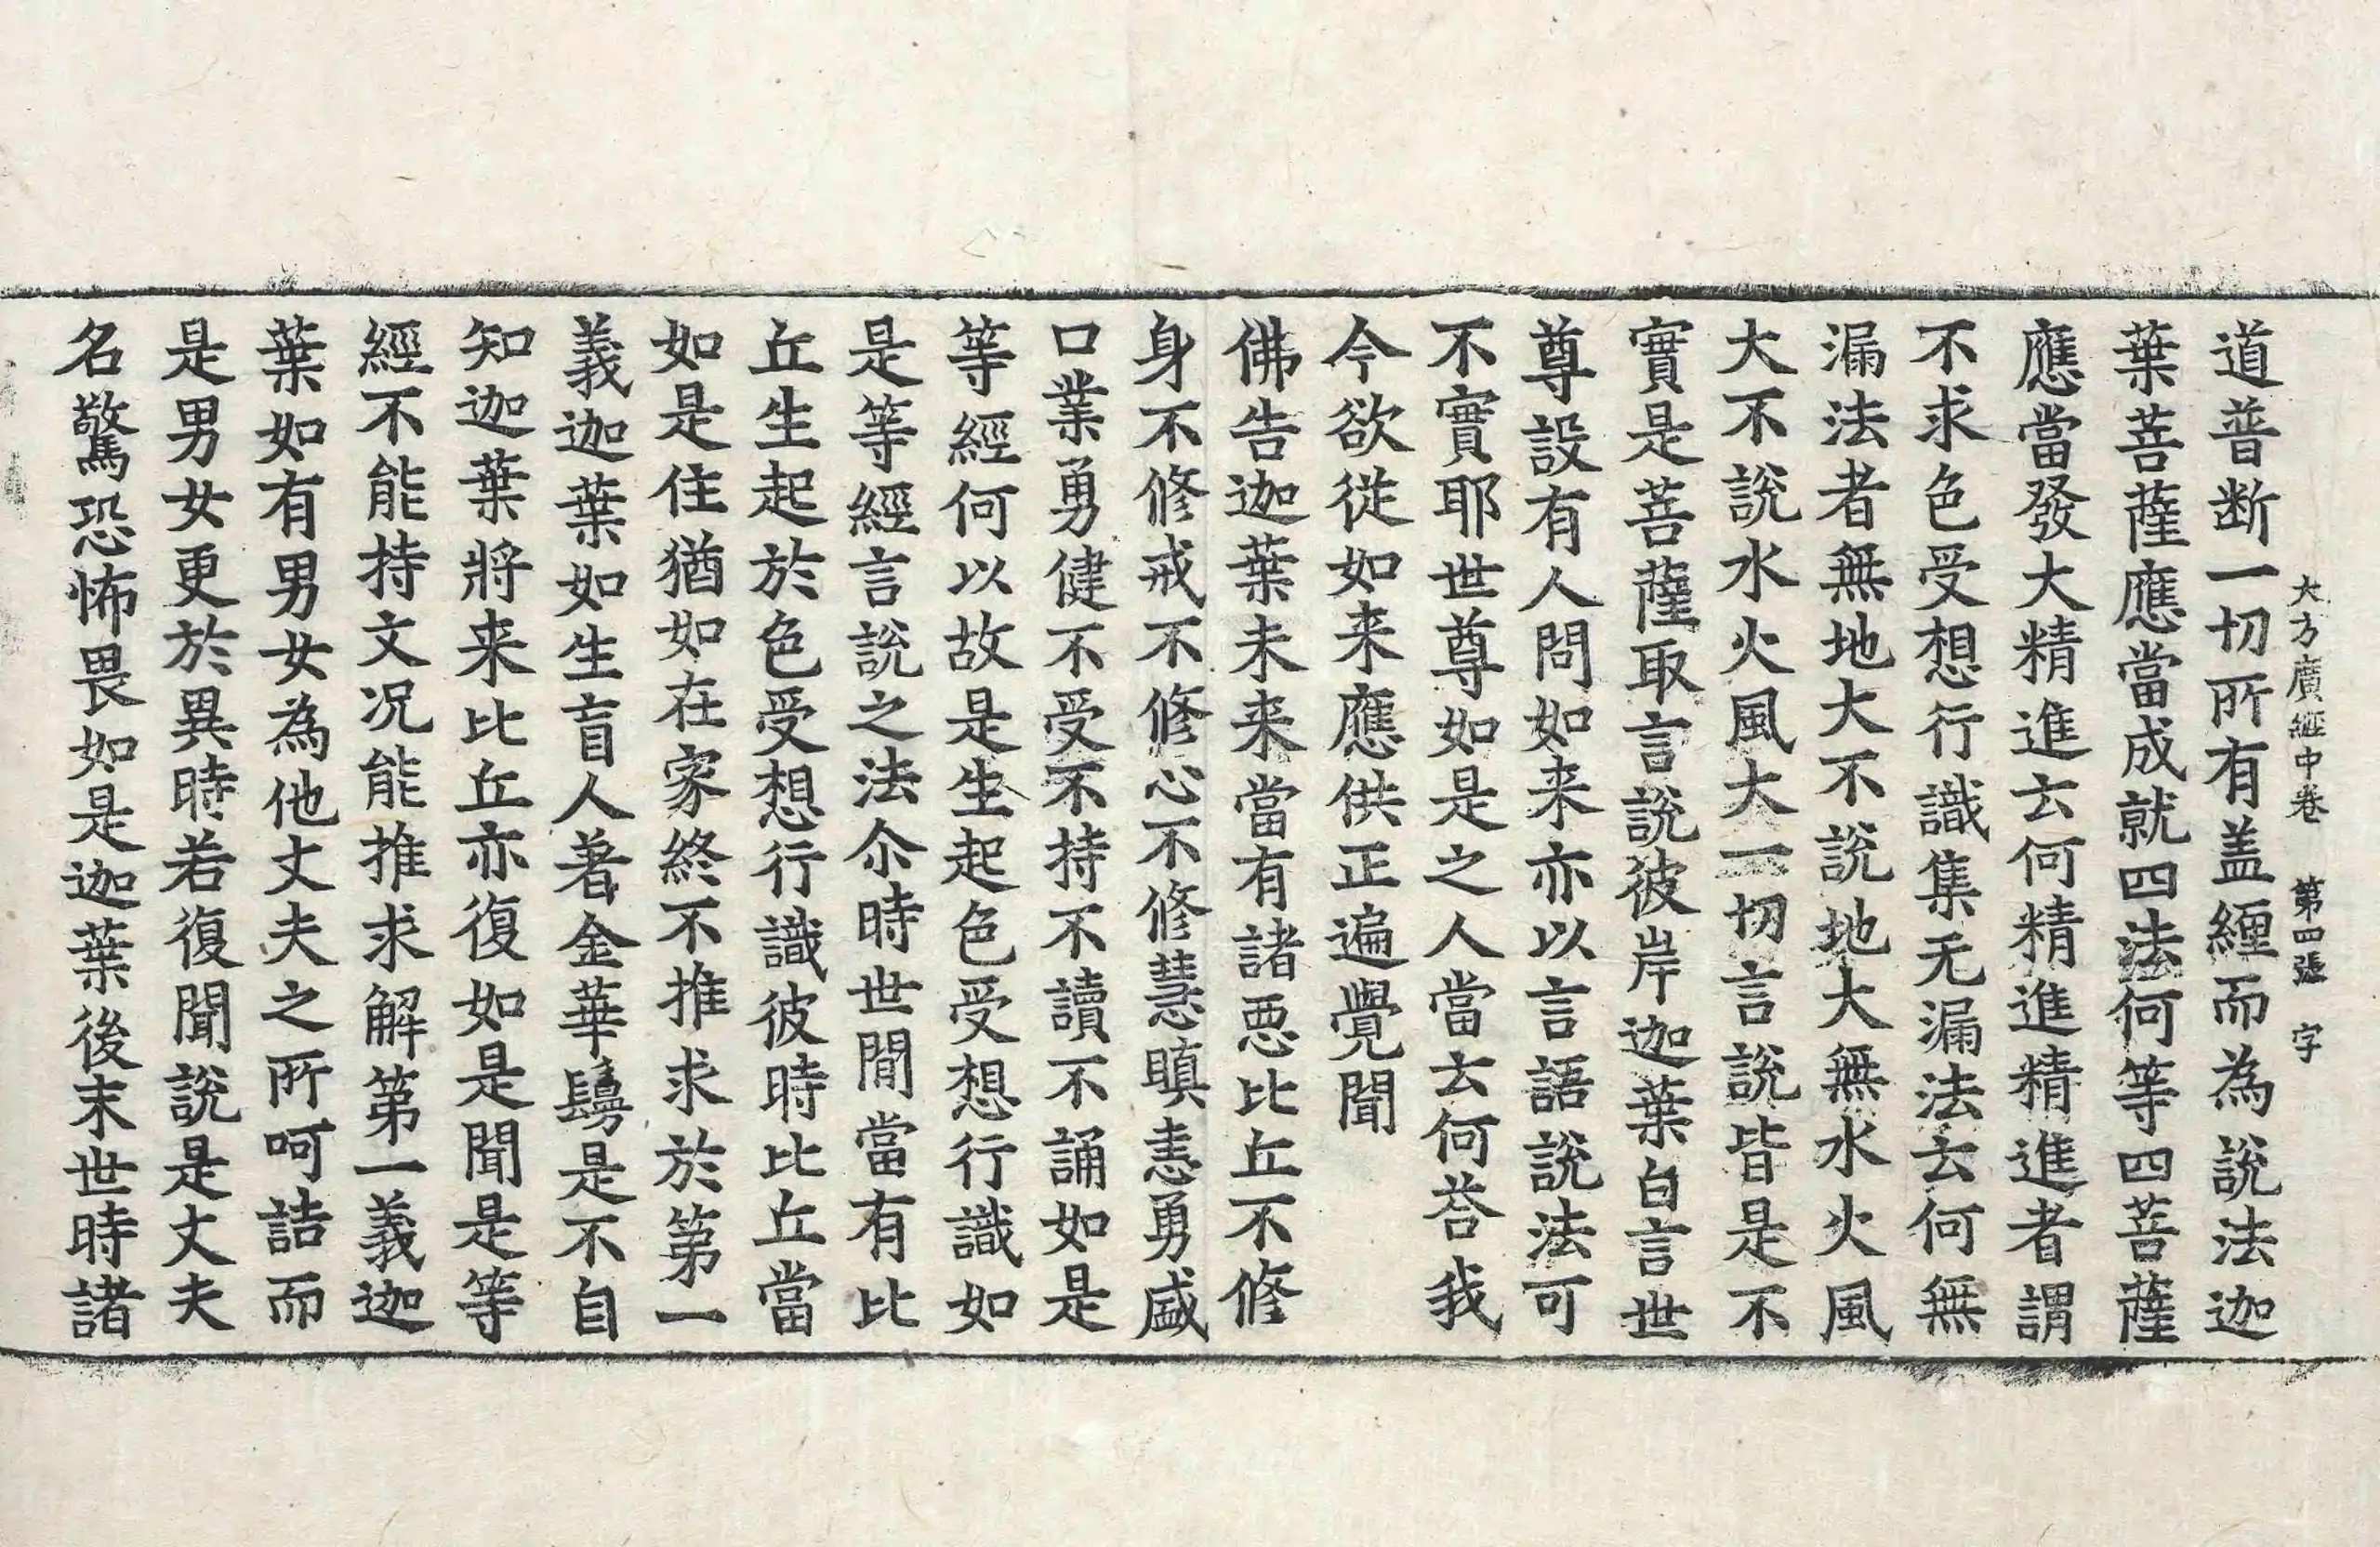 大方廣經中卷　第四張　字
道普断一切所有盖纏而為說法迦
葉菩薩應當成就四法何等四菩薩
應當發大精進云何精進精進者謂
不求色受想行識集无漏法云何無
漏法者無地大不說地大無水火風
大不說水火風大一切言說皆是不
實是菩薩取言說彼岸迦葉白言世
尊設有人問如来亦以言語說法可
不實耶世尊如是之人當云何荅我
今欲從如来應供正遍覺聞
佛告迦葉未来當有諸惡比丘不修
身不修戒不修心不修慧瞋恚勇盛
口業勇健不受不持不讀不誦如是
等經何以故是生起色受想行識如
是等經言說之法尒時世間當有比
丘生起於色受想行識彼時比丘當
如是住猶如在家終不推求於第一
義迦葉如生盲人著金華鬘是不自
知迦葉將来比丘亦復如是聞是等
經不能持文况能推求解第一義迦
葉如有男女為他丈夫之所呵詰而
是男女更於異時若復聞說是丈夫
名驚恐怖畏如是迦葉後末世時諸